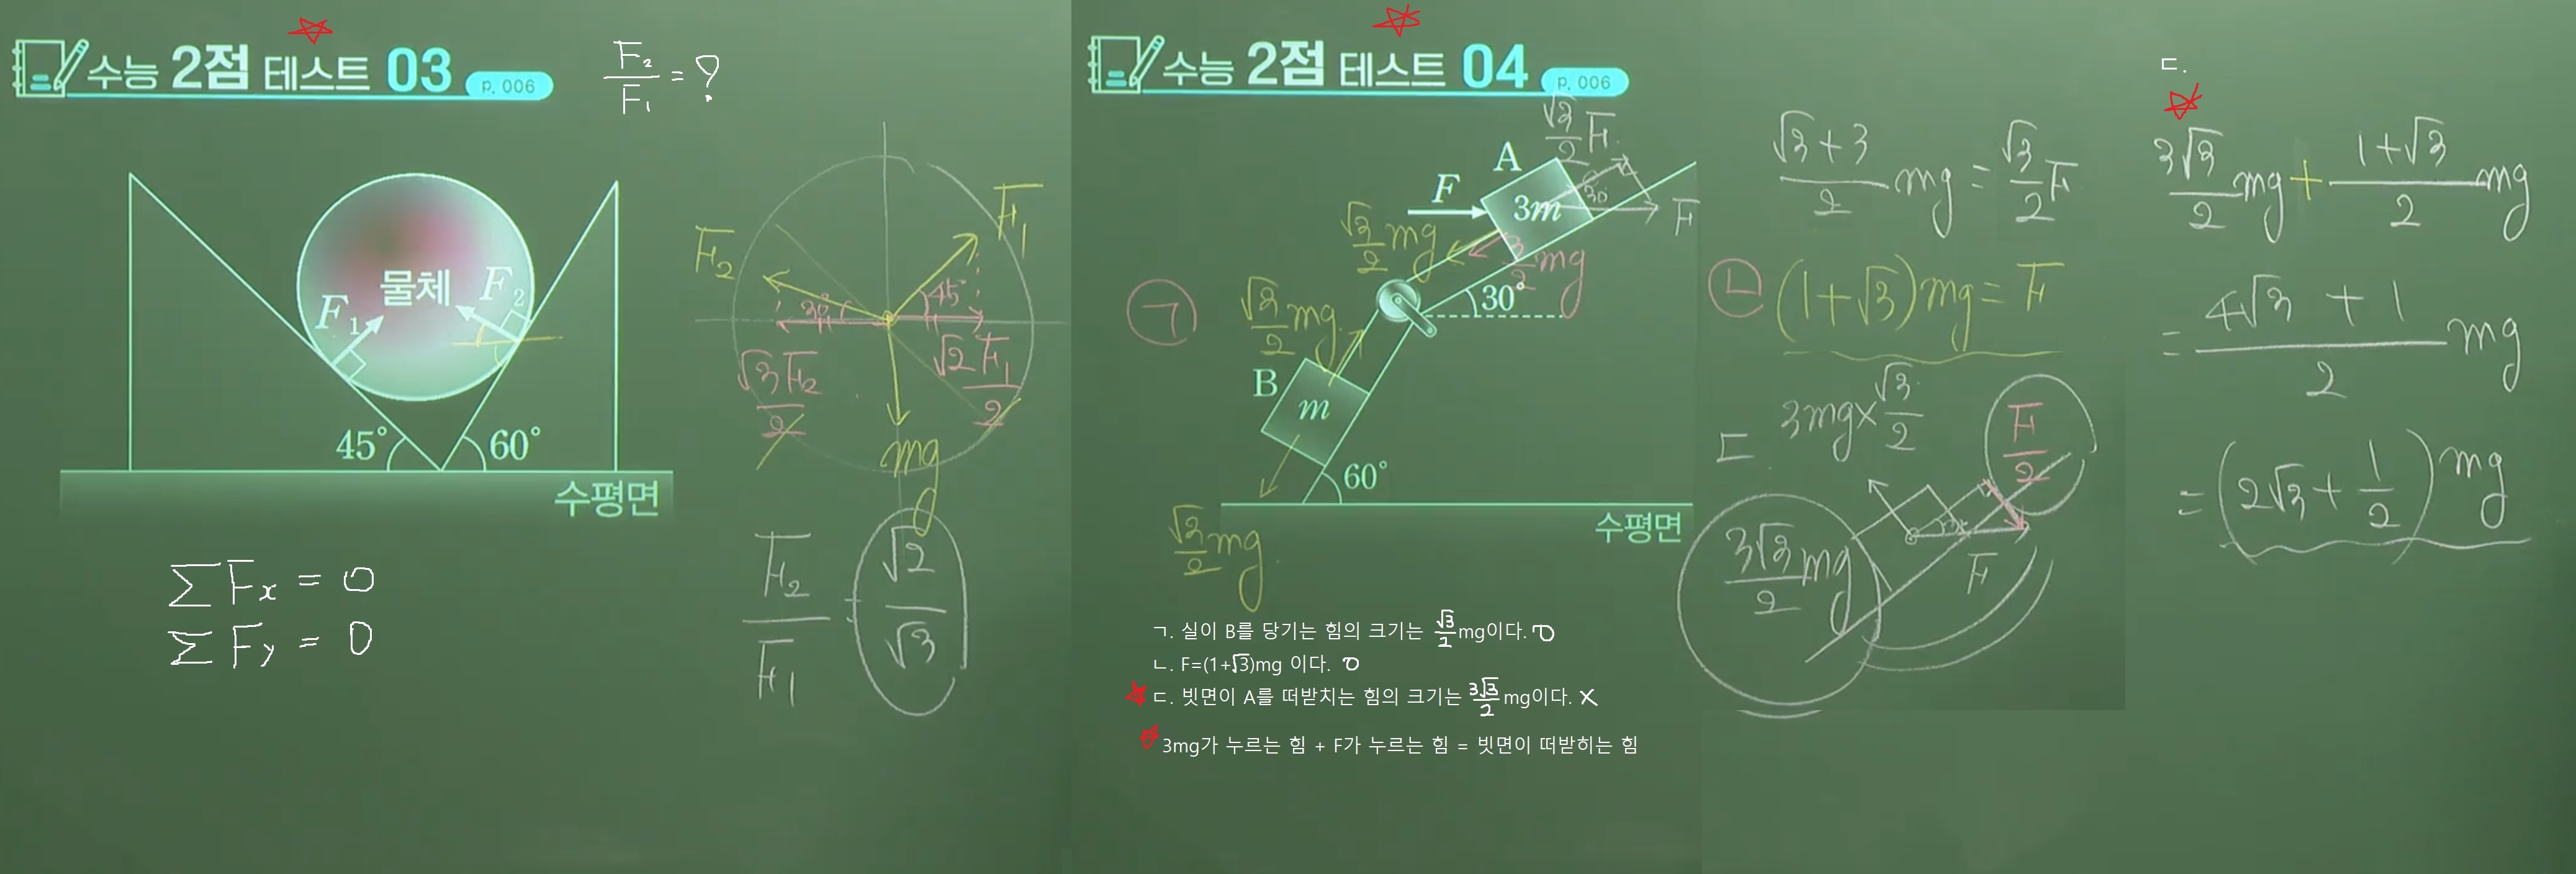 수능 2점 테스트 03 p. 006
F₂/F₁ = ?
물체
F₁
F₂
45°
60°
수평면
F₁
F₂
45°
30°
√3F₂/2
√2F₁/2
mg
ΣFx = 0
ΣFy = 0
F₂/F₁ = √2/√3
수능 2점 테스트 04 p. 006
√3/2 F
A
F
3m
30
F
√3/2 mg
3/2 mg
ㄱ
√3/2 mg
30°
B
m
60°
√3/2 mg
수평면
ㄱ. 실이 B를 당기는 힘의 크기는 √3/2 mg이다. O
ㄴ. F=(1+√3)mg 이다. O
ㄷ. 빗면이 A를 떠받치는 힘의 크기는 3√3/2 mg이다. X
3mg가 누르는 힘 + F가 누르는 힘 = 빗면이 떠받히는 힘
(√3+3)/2 mg = √3/2 F
ㄴ (1+√3)mg = F
ㄷ. 3mg×√3/2
F/2
3√3/2 mg
F
ㄷ.
3√3/2 mg + (1+√3)/2 mg
= (4√3 + 1)/2 mg
= (2√3 + 1/2) mg